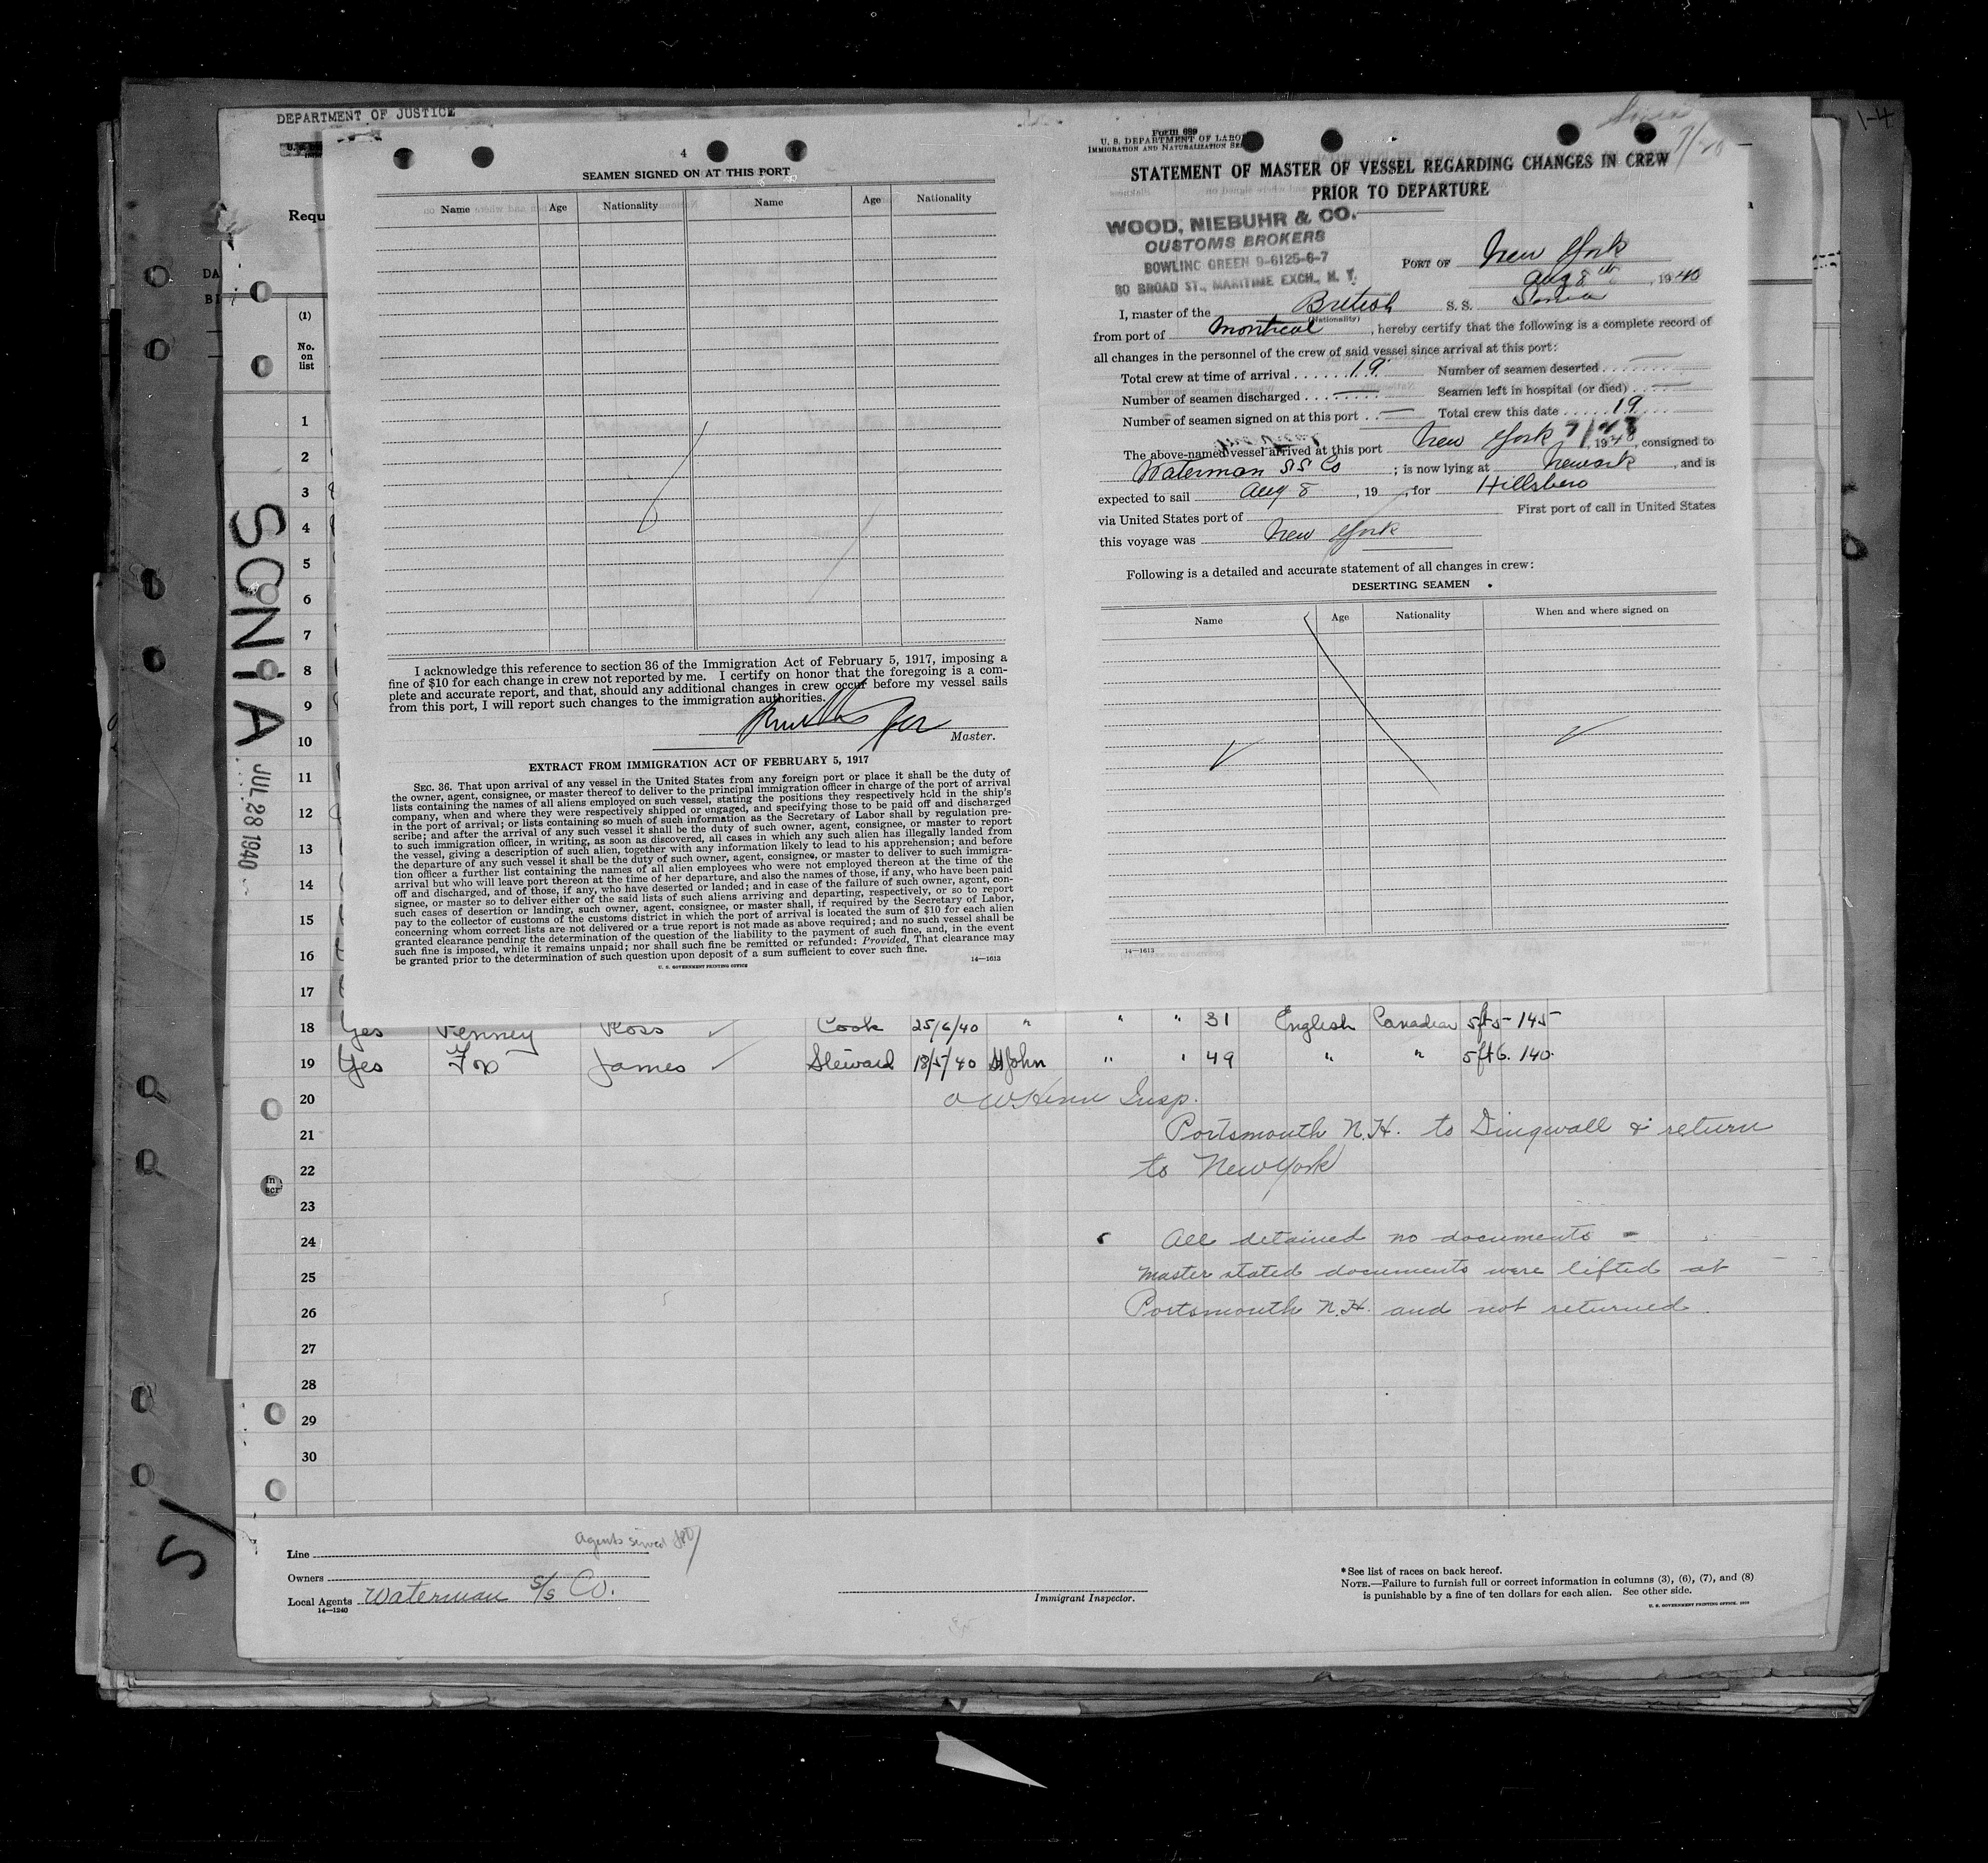 DEPARTMENT OF JUSTICE
Requ
DA
(1)
No.
on
list
1
2
3
4
5
6
7
8
9
10
11
12
13
14
15
16
17
SONIA
JUL 28 1940
4
SEAMEN SIGNED ON AT THIS PORT
Name Age Nationality Name Age Nationality
I acknowledge this reference to section 36 of the Immigration Act of February 5, 1917, imposing a
fine of $10 for each change in crew not reported by me. I certify on honor that the foregoing is a com-
plete and accurate report, and that, should any additional changes in crew occur before my vessel sails
from this port, I will report such changes to the immigration authorities.
Master.
EXTRACT FROM IMMIGRATION ACT OF FEBRUARY 5, 1917
SEC. 36. That upon arrival of any vessel in the United States from any foreign port or place it shall be the duty of
the owner, agent, consignee, or master thereof to deliver to the principal immigration officer in charge of the port of arrival
lists containing the names of all aliens employed on such vessel, stating the positions they respectively hold in the ship's
company, when and where they were respectively shipped or engaged, and specifying those to be paid off and discharged
in the port of arrival; or lists containing so much of such information as the Secretary of Labor shall by regulation pre-
scribe; and after the arrival of any such vessel it shall be the duty of such owner, agent, consignee, or master to report
to such immigration officer, in writing, as soon as discovered, all cases in which any such alien has illegally landed from
the vessel, giving a description of such alien, together with any information likely to lead to his apprehension; and before
the departure of any such vessel it shall be the duty of such owner, agent, consignee, or master to deliver to such immigra-
tion officer a further list containing the names of all alien employees who were not employed thereon at the time of the
arrival but who will leave port thereon at the time of her departure, and also the names of those, if any, who have been paid
off and discharged, and of those, if any, who have deserted or landed; and in case of the failure of such owner, agent, con-
signee, or master so to deliver either of the said lists of such aliens arriving and departing, respectively, or so to report
such cases of desertion or landing, such owner, agent, consignee, or master shall, if required by the Secretary of Labor,
pay to the collector of customs of the customs district in which the port of arrival is located the sum of $10 for each alien
concerning whom correct lists are not delivered or a true report is not made as above required; and no such vessel shall be
granted clearance pending the determination of the question of the liability to the payment of such fine, and, in the event
such fine is imposed, while it remains unpaid; nor shall such fine be remitted or refunded: Provided, That clearance may
be granted prior to the determination of such question upon deposit of a sum sufficient to cover such fine.
U. S. GOVERNMENT PRINTING OFFICE 14—1613
Form 689
U. S. DEPARTMENT OF LABOR
IMMIGRATION AND NATURALIZATION SE
1-4
STATEMENT OF MASTER OF VESSEL REGARDING CHANGES IN CREW
PRIOR TO DEPARTURE
WOOD, NIEBUHR & CO.
CUSTOMS BROKERS
BOWLING GREEN 9-6125-6-7
80 BROAD ST., MARITIME EXCH., N. Y.
PORT OF New York
Aug 8th, 1940
I, master of the British S. S. Sonia
(Nationality)
from port of Montreal, hereby certify that the following is a complete record of
all changes in the personnel of the crew of said vessel since arrival at this port:
Total crew at time of arrival 19 Number of seamen deserted —
Number of seamen discharged — Seamen left in hospital (or died) —
Number of seamen signed on at this port — Total crew this date 19
The above-named vessel arrived at this port New York 7/28, 1940, consigned to
Waterman SS Co; is now lying at Newark, and is
expected to sail Aug 8, 19, for Hillsboro
via United States port of First port of call in United States
this voyage was New York
Following is a detailed and accurate statement of all changes in crew:
DESERTING SEAMEN
Name Age Nationality When and where signed on
14—1613
18 Yes Penney Ross ✓ Cook 25/6/40 " " " 31 English Canadian 5ft5 145
19 Yes Fox James ✓ Steward 18/5/40 St John " " 49 " " 5ft6. 140
20 Insp.
21 Portsmouth N.H. to Dingwall & return
22 to New York
23
24 All detained no documents -
25 Master stated documents were lifted at
26 Portsmouth N.H. and not returned.
27
28
29
30
Line Agents served
Owners
Local Agents Waterman S/S Co.
14—1240
Immigrant Inspector.
*See list of races on back hereof.
NOTE.—Failure to furnish full or correct information in columns (3), (6), (7), and (8)
is punishable by a fine of ten dollars for each alien. See other side.
U. S. GOVERNMENT PRINTING OFFICE